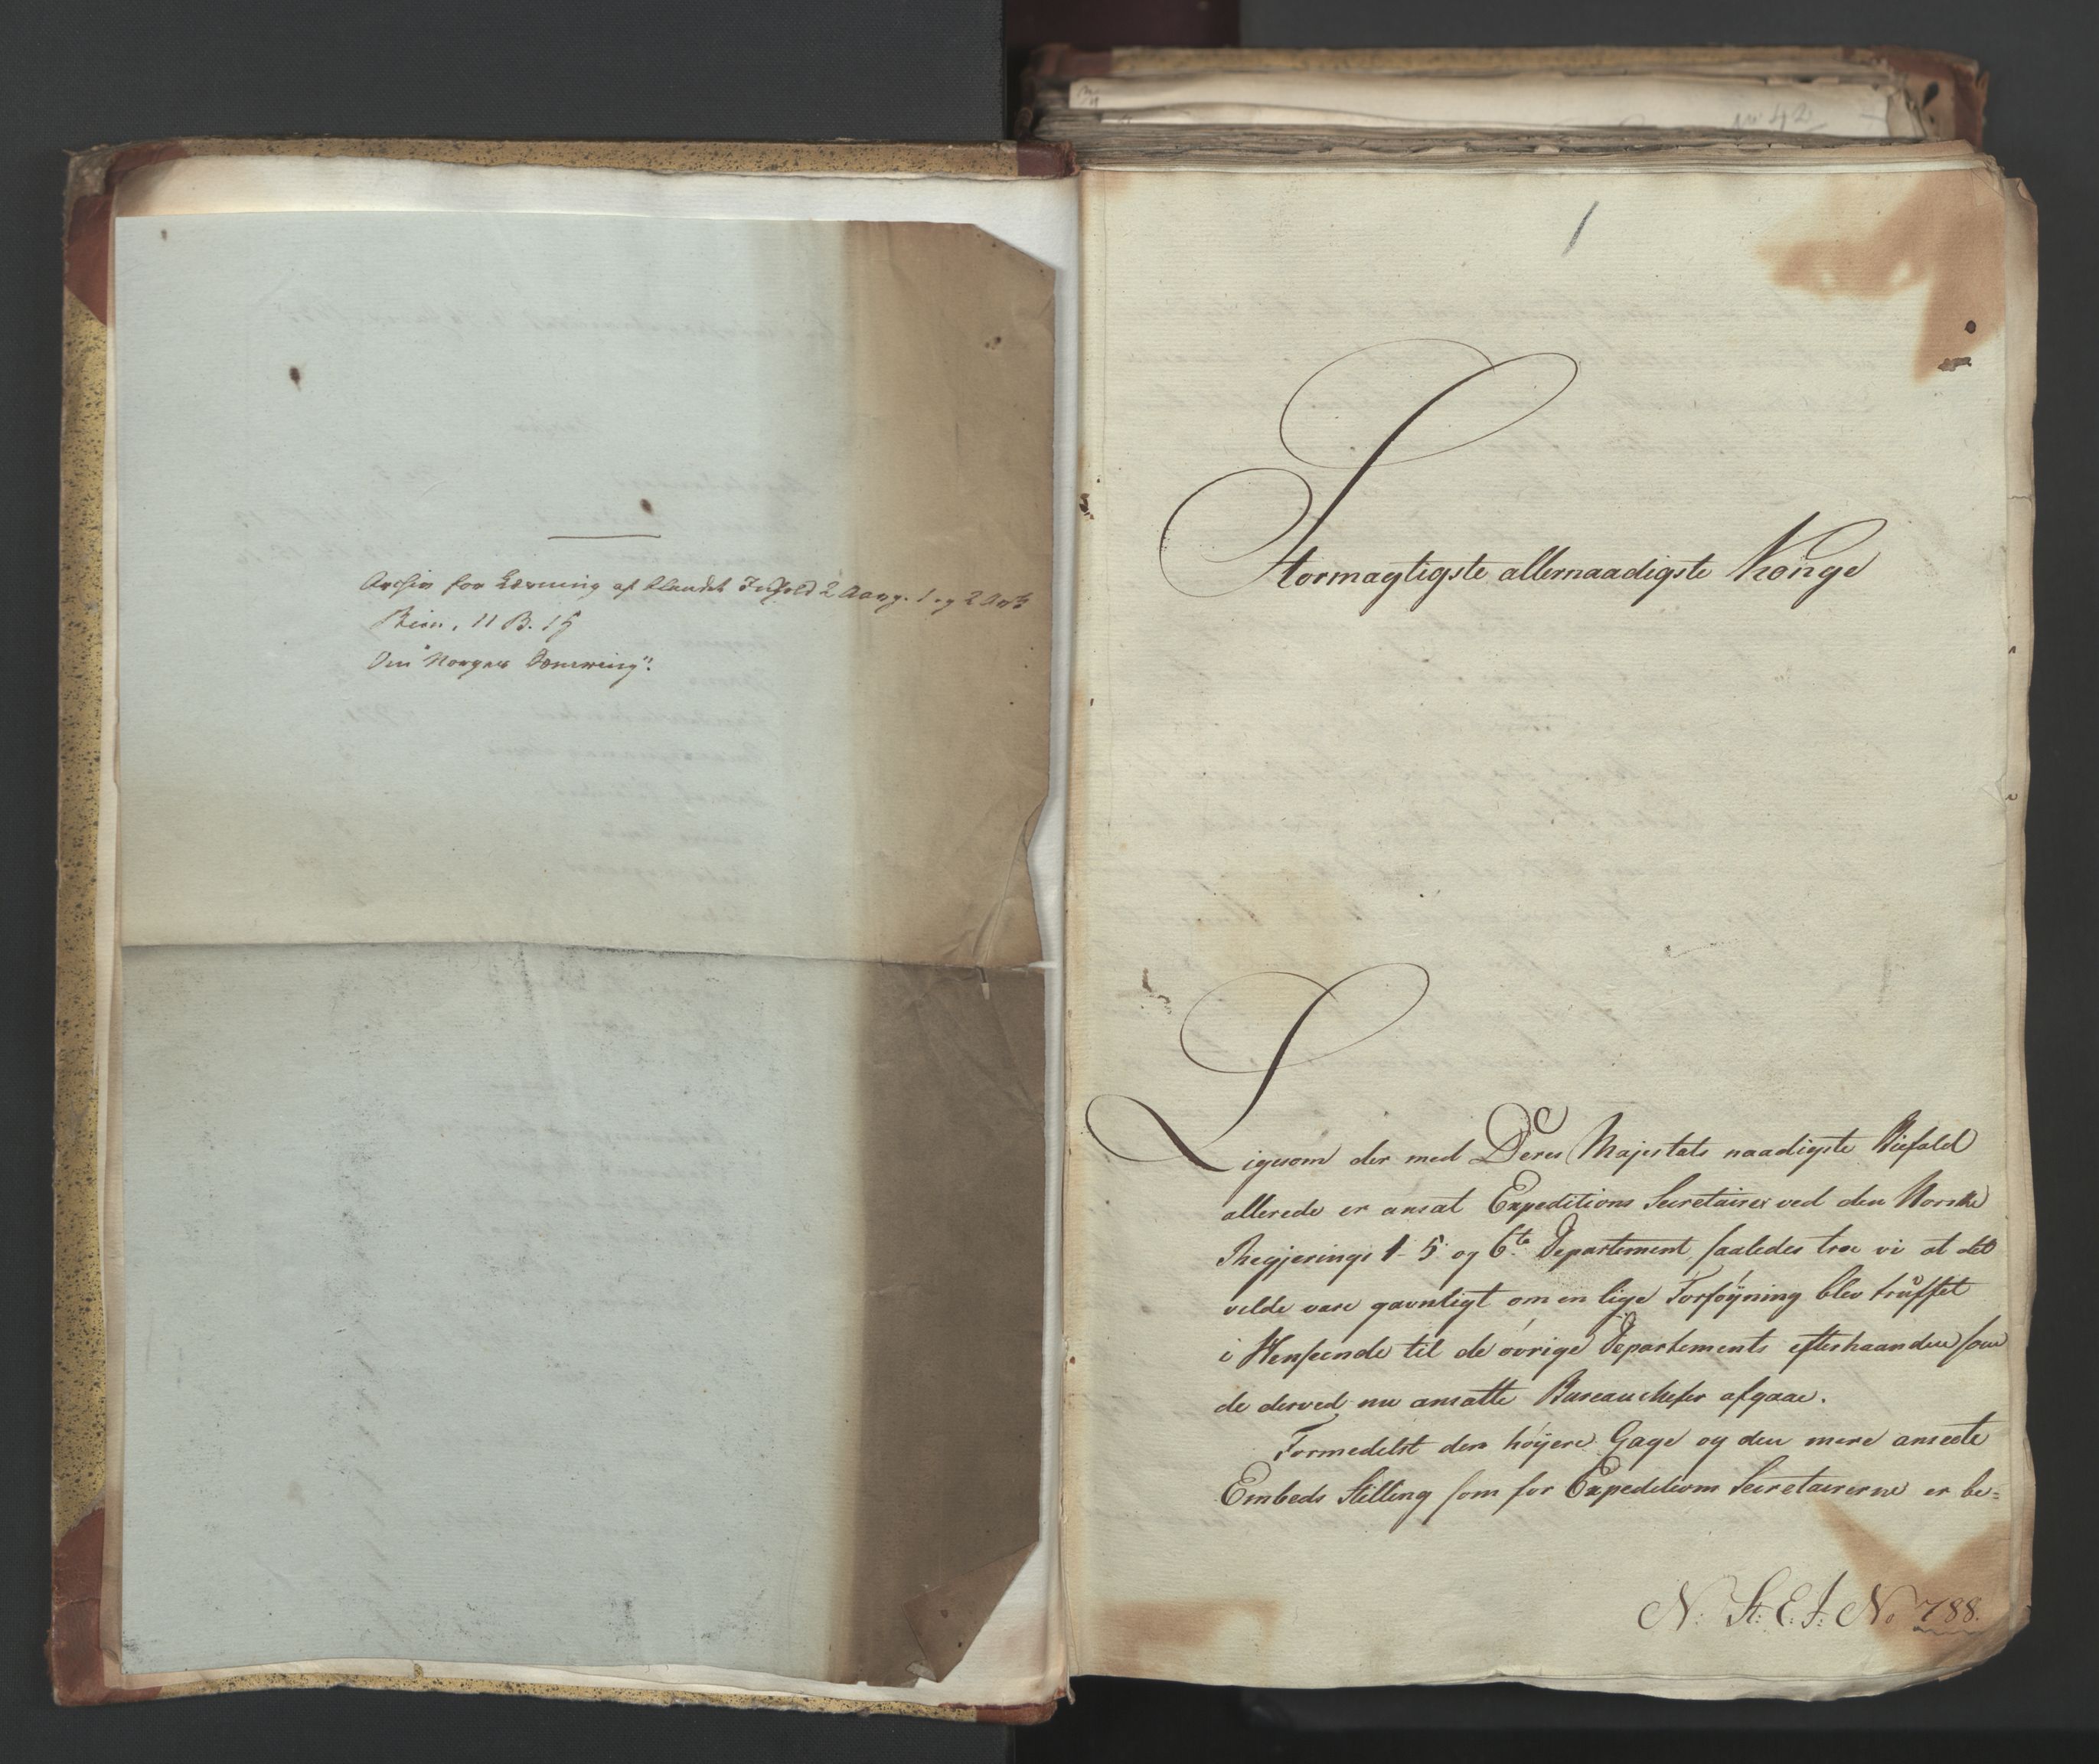 Archiv for Læsning af blandet Indhold 2 Aarg. 1 og 2
11 B. 15
Om "Norges
No 42
1
Stormægtigste allernaadigste Konge
Ligesom der med Deres Majestæts naadigste Biefald
allerede er ansat Expeditions Secretairer ved den Norske
Regjerings 1. 5. og 6te Departement, saaledes troe vi at det
vilde være gavnligt om en lige Forføyning blev trüffet
i Henseende til de øvrige Departements efterhaanden som
de derved nu ansatte Bureauchefer afgaae.
Formedelst den høyere Gage og den mere anseete
Embeds Stilling som for Expeditions Secretairerne er be=
N: St: E. J: No 788.